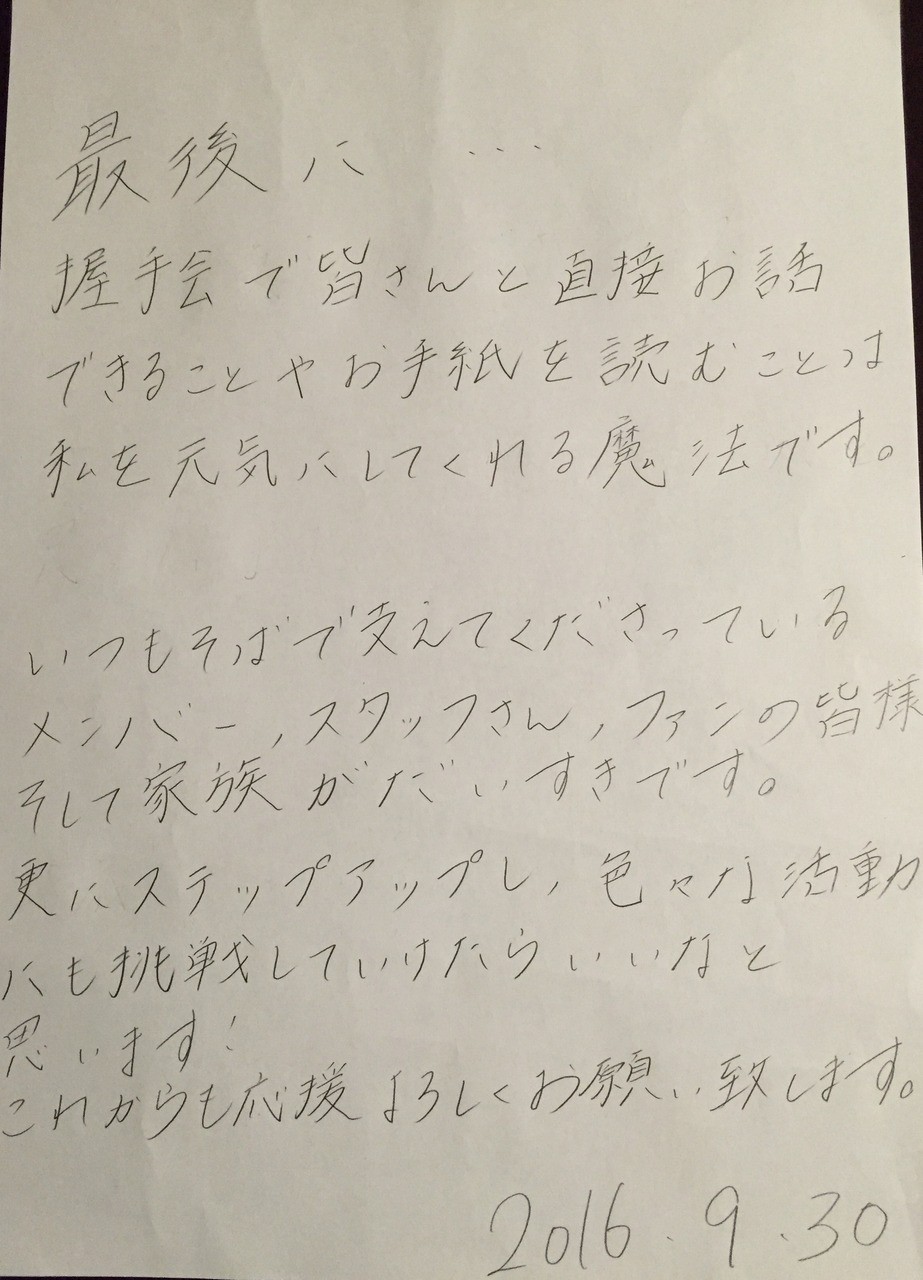 最後に ...
握手会で皆さんと直接お話
できることやお手紙を読むことは
私を元気にしてくれる魔法です。
いつもそばで支えてくださっている
メンバー,スタッフさん,ファンの皆様
そして家族がだいすきです。
更にステップアップし,色々な活動
にも挑戦していけたらいいなと
思います!
これからも応援よろしくお願い致します。
2016.9.30